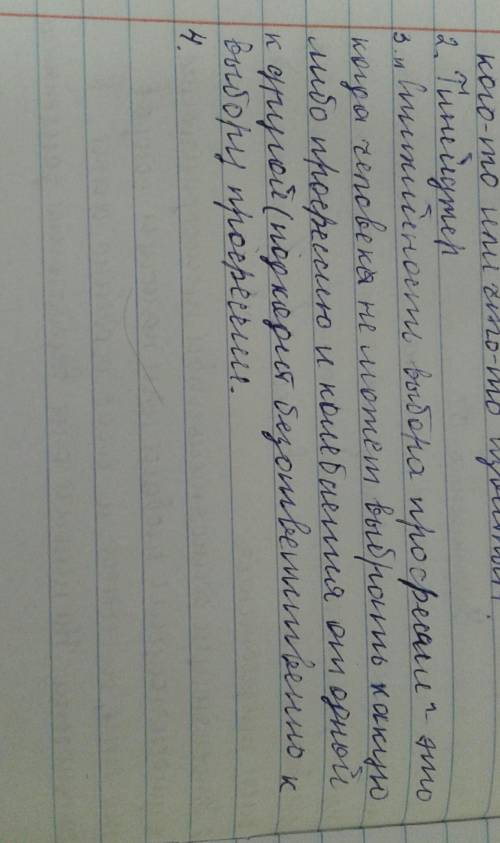 кого-то или чего-то
2. Тинейджер
3. выбора профессии - это
когда человека не может выбрать какую
либо профессию и колебаетия от одной
к другой (подходит безответственно к
выбору профессии.
4.